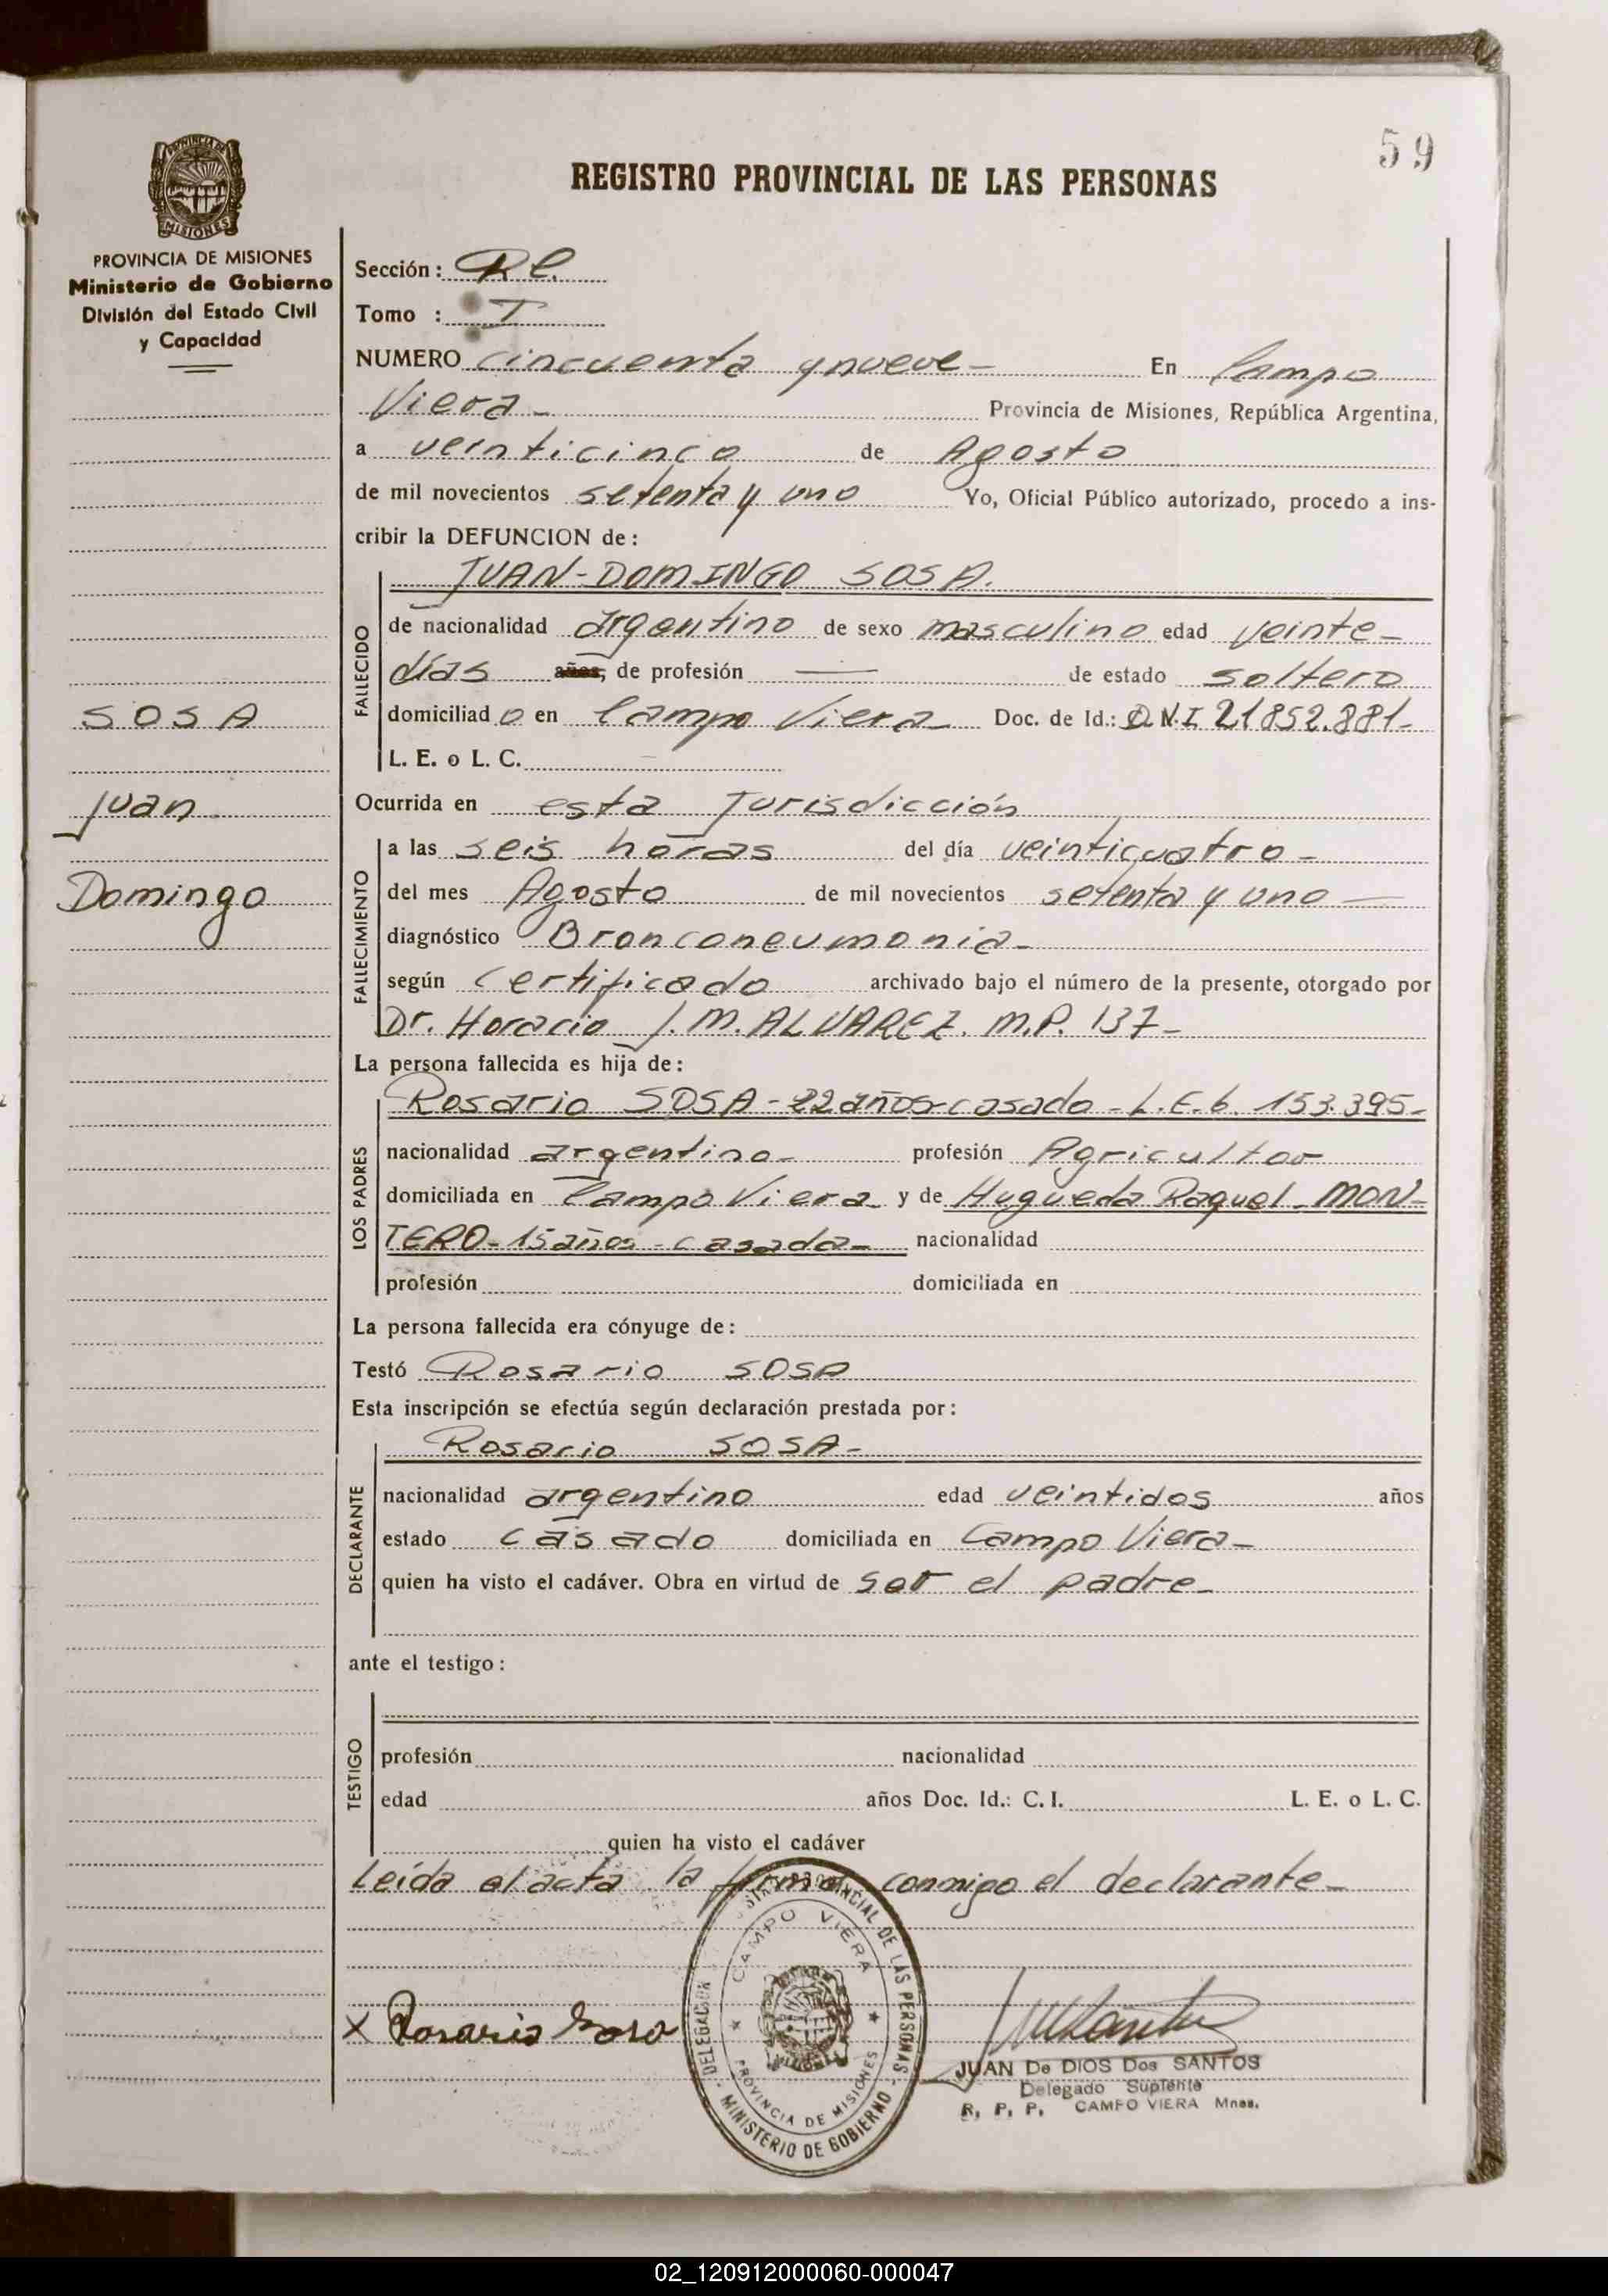 59
PROVINCIA DE MISIONES
REGISTRO PROVINCIAL DE LAS PERSONAS
PROVINCIA DE MISIONES
Ministerio de Gobierno
División del Estado Civil
y Capacidad
SOSA
Juan
Domingo
Sección:
Tomo : I
NUMERO cincuenta y nueve - En Campo
Viera - Provincia de Misiones, República Argentina,
a veinticinco de Agosto
de mil novecientos setenta y uno Yo, Oficial Público autorizado, procedo a ins-
cribir la DEFUNCION de:
JUAN-DOMINGO SOSA.
FALLECIDO
de nacionalidad argentino de sexo masculino edad veinte-
días años, de profesión — de estado soltero
domiciliado en Campo Viera Doc. de Id.: D.N.I 21852.881-
L. E. o L. C.
Ocurrida en esta Jurisdicción
FALLECIMIENTO
a las seis horas del día veinticuatro -
del mes Agosto de mil novecientos setenta y uno —
diagnóstico Bronconeumonia-
según certificado archivado bajo el número de la presente, otorgado por
Dr. Horacio J. M. ALVAREZ. M.P. 137-
La persona fallecida es hija de:
LOS PADRES
Rosario SOSA - 22 años-casado - L.E. 6. 153.395-
nacionalidad argentino- profesión Agricultor
domiciliada en Campo Viera y de Hugueda Raquel - MON-
TERO- 15 años - casada- nacionalidad
profesión domiciliada en
La persona fallecida era cónyuge de:
Testó Rosario SOSA
Esta inscripción se efectúa según declaración prestada por:
DECLARANTE
Rosario SOSA-
nacionalidad argentino edad veintidos años
estado casado domiciliada en Campo Viera-
quien ha visto el cadáver. Obra en virtud de ser el padre-
ante el testigo:
TESTIGO
profesión nacionalidad
edad años Doc. Id.: C. I. L. E. o L. C.
quien ha visto el cadáver
Leída el acta la firma conmigo el declarante-
x Rosario Sosa
DELEGACION PROVINCIAL DE LAS PERSONAS - MINISTERIO DE GOBIERNO
CAMPO VIERA
PROVINCIA DE MISIONES
JUAN De DIOS Dos SANTOS
Delegado Suplente
R. P. P. CAMPO VIERA Mnes.
02_120912000060-000047